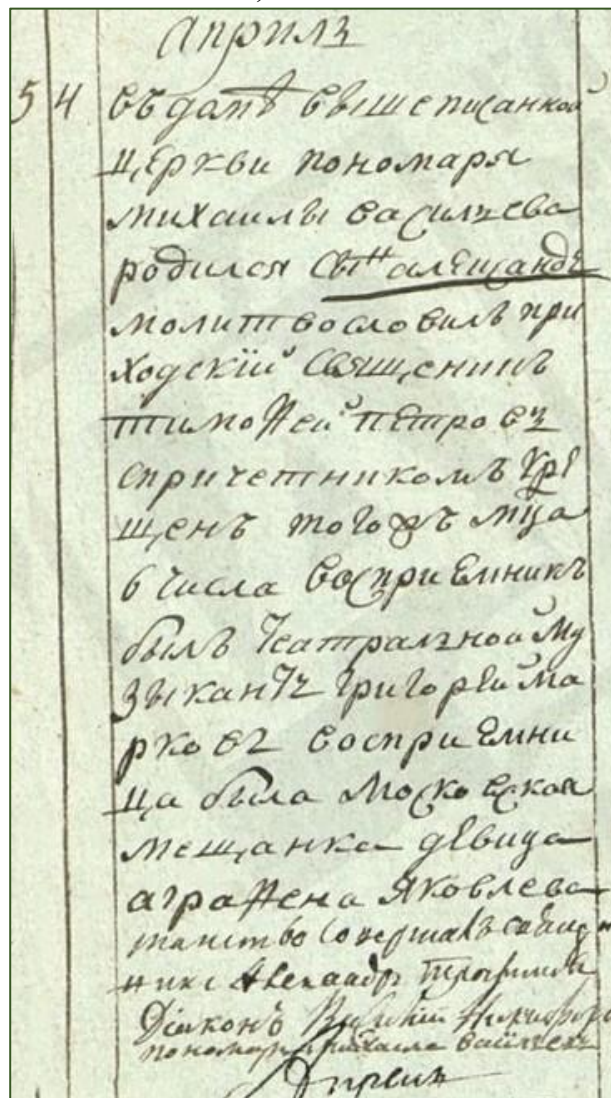 Априлѣ
5 4 въ домѣ вышеписанной
церкви пономаря
михаилы васильева
родился сынъ алеѯандръ
молитвословилъ при
ходскїй священникъ
тимоѳей петровъ
спричетникомъ кре
щенъ тогожъ мца
6 числа восприемникъ
былъ театральной му
зыкантъ григорей ма
рковъ восприемни
ца была московская
мещанка девица
аграѳена яковлева
таинство совершалъ священ
никъ
Дїаконъ
пономарь михаила васильевъ